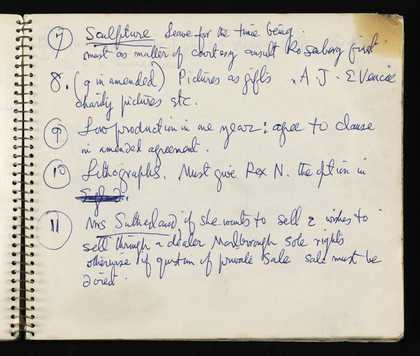 7) Sculpture Leave for the time being.
must as matter of courtesy consult Rosenberg first
8. (9 in amended) Pictures as gifts, A.J. E Vencie
charity pictures etc.
9 Low production in one year: agree to clause
in amended agreement.
10 Lithographs. Must give Rex N. the option in
11 Mrs Sutherland if she wants to sell & wishes to
sell through a dealer Marlborough sole rights
otherwise if question of private sale sale must be